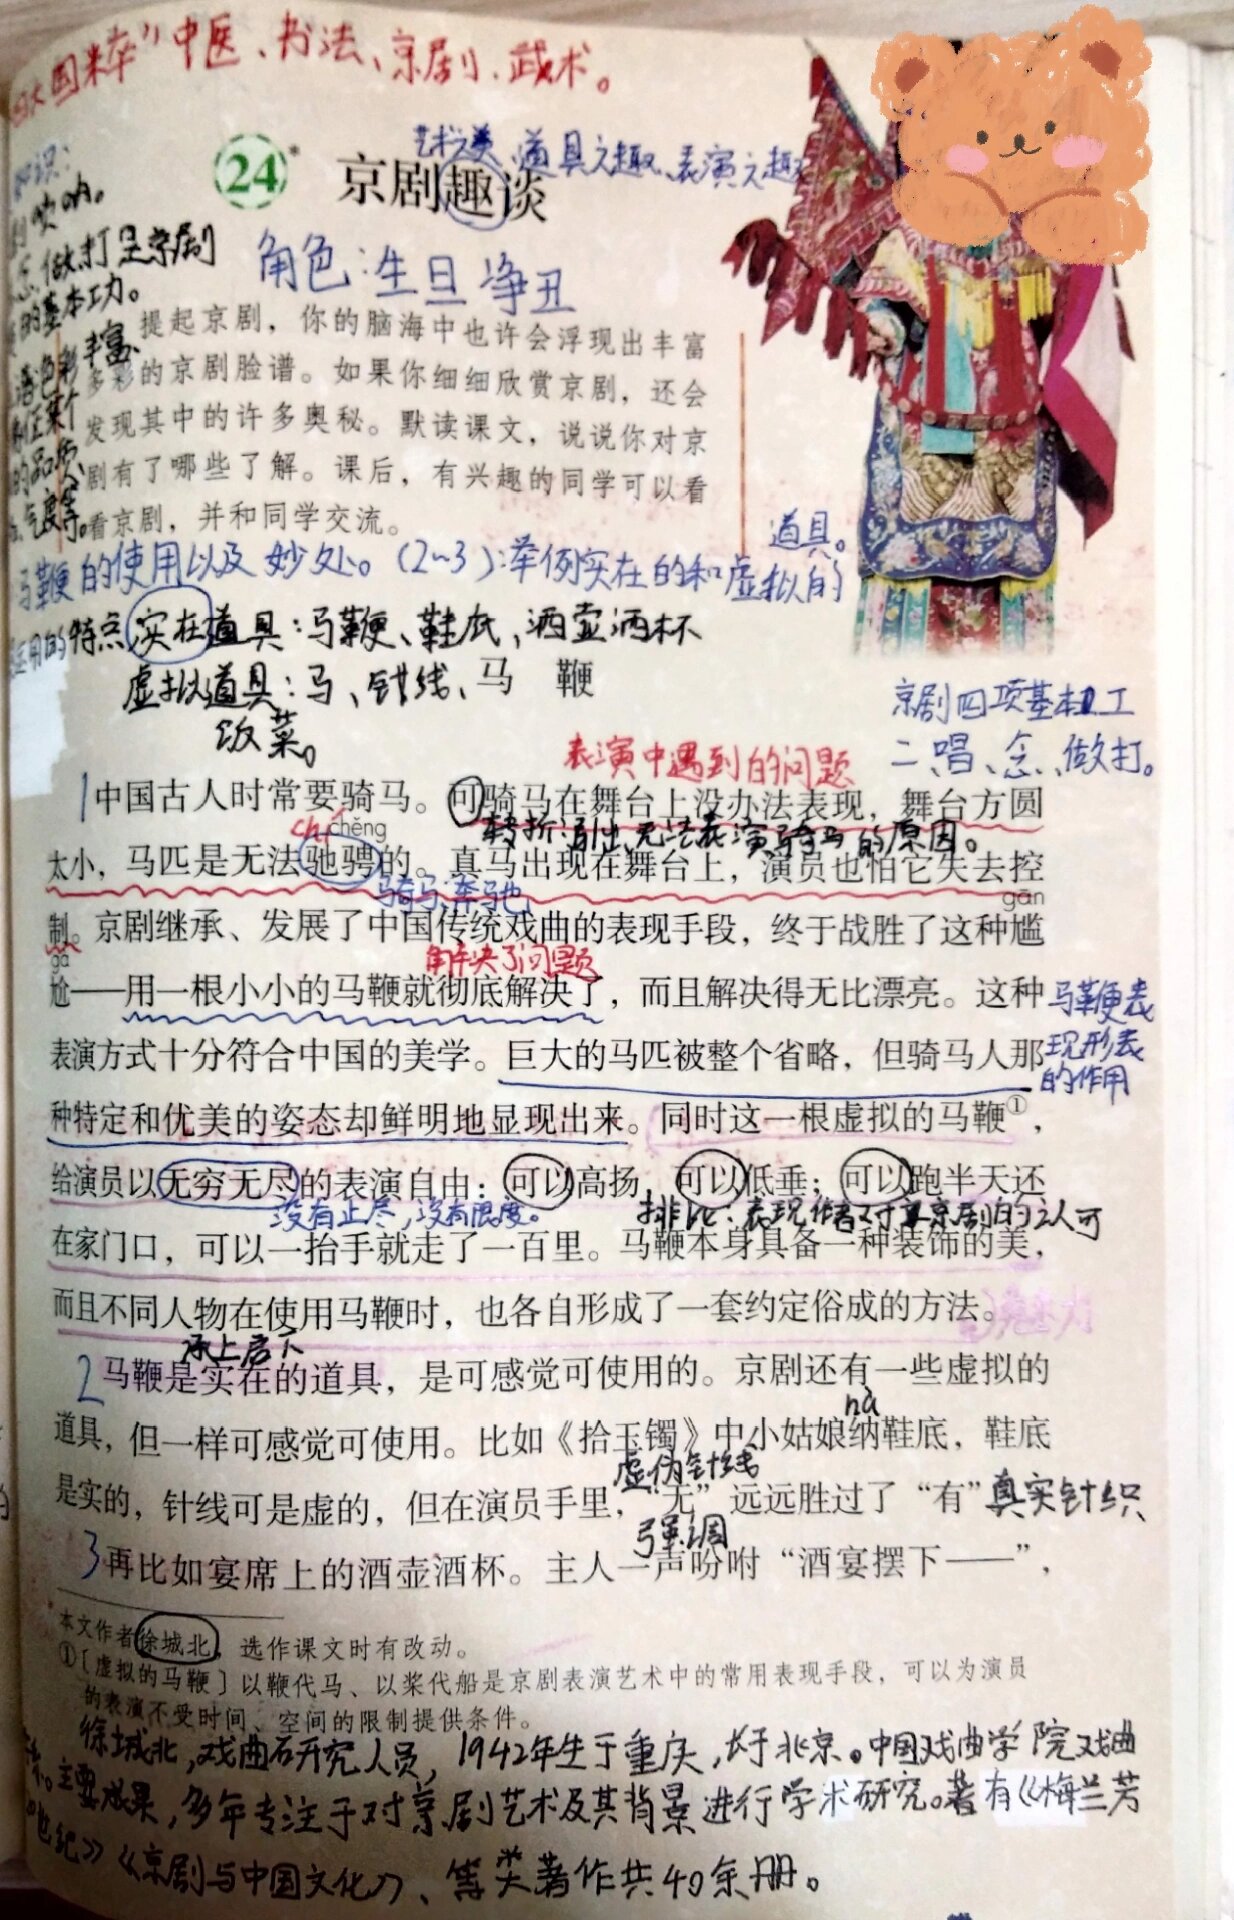 四大国粹”中医、书法、京剧、武术。
艺术之美、道具之趣、表演之趣
24*
京剧趣谈
角色：生旦净丑
做打是京剧
的基本功。
丰富
提起京剧，你的脑海中也许会浮现出丰富
多彩的京剧脸谱。如果你细细欣赏京剧，还会
发现其中的许多奥秘。默读课文，说说你对京
剧有了哪些了解。课后，有兴趣的同学可以看
看京剧，并和同学交流。
道具。
马鞭的使用以及妙处。(2~3)：举例实在的和虚拟的
特点 实在道具：马鞭、鞋底、洒壶洒杯
虚拟道具：马、针线、
饭菜。
马 鞭
京剧四项基本工
二、唱、念、做打。
表演中遇到的问题
1中国古人时常要骑马。可骑马在舞台上没办法表现，舞台方圆
转折：引出无法表演骑马的原因。
chí chěng
太小，马匹是无法驰骋的。真马出现在舞台上，演员也怕它失去控
骑马奔驰
gān
制。京剧继承、发展了中国传统戏曲的表现手段，终于战胜了这种尴
gà
解决了问题
尬——用一根小小的马鞭就彻底解决了，而且解决得无比漂亮。这种
马鞭表
现形表
的作用
表演方式十分符合中国的美学。巨大的马匹被整个省略，但骑马人那
种特定和优美的姿态却鲜明地显现出来。同时这一根虚拟的马鞭①，
给演员以无穷无尽的表演自由：可以高扬，可以低垂；可以跑半天还
没有止尽，没有限度。
排比：表现作者对京剧的认可
在家门口，可以一抬手就走了一百里。马鞭本身具备一种装饰的美，
而且不同人物在使用马鞭时，也各自形成了一套约定俗成的方法。
魅力
承上启下
2马鞭是实在的道具，是可感觉可使用的。京剧还有一些虚拟的
nà
道具，但一样可感觉可使用。比如《拾玉镯》中小姑娘纳鞋底，鞋底
虚伪针线
是实的，针线可是虚的，但在演员手里，“无”远远胜过了“有”真实针织
强调
3再比如宴席上的酒壶酒杯。主人一声吩咐“酒宴摆下——”，
本文作者徐城北，选作课文时有改动。
①〔虚拟的马鞭〕以鞭代马、以桨代船是京剧表演艺术中的常用表现手段，可以为演员
的表演不受时间、空间的限制提供条件。
徐城北，戏曲研究人员，1942年生于重庆，长于北京。中国戏曲学院戏曲
系。主要成果，多年专注于对京剧艺术及其背景进行学术研究。著有《梅兰芳
世纪》《京剧与中国文化》、等类著作共40余册。